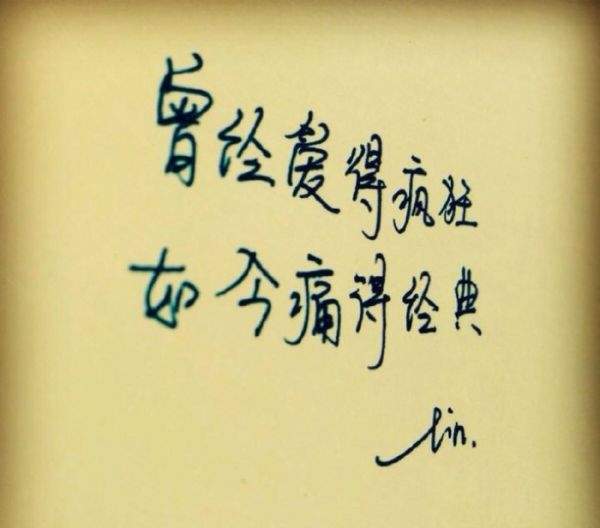 曾经爱得疯狂
如今痛得经典
lin.